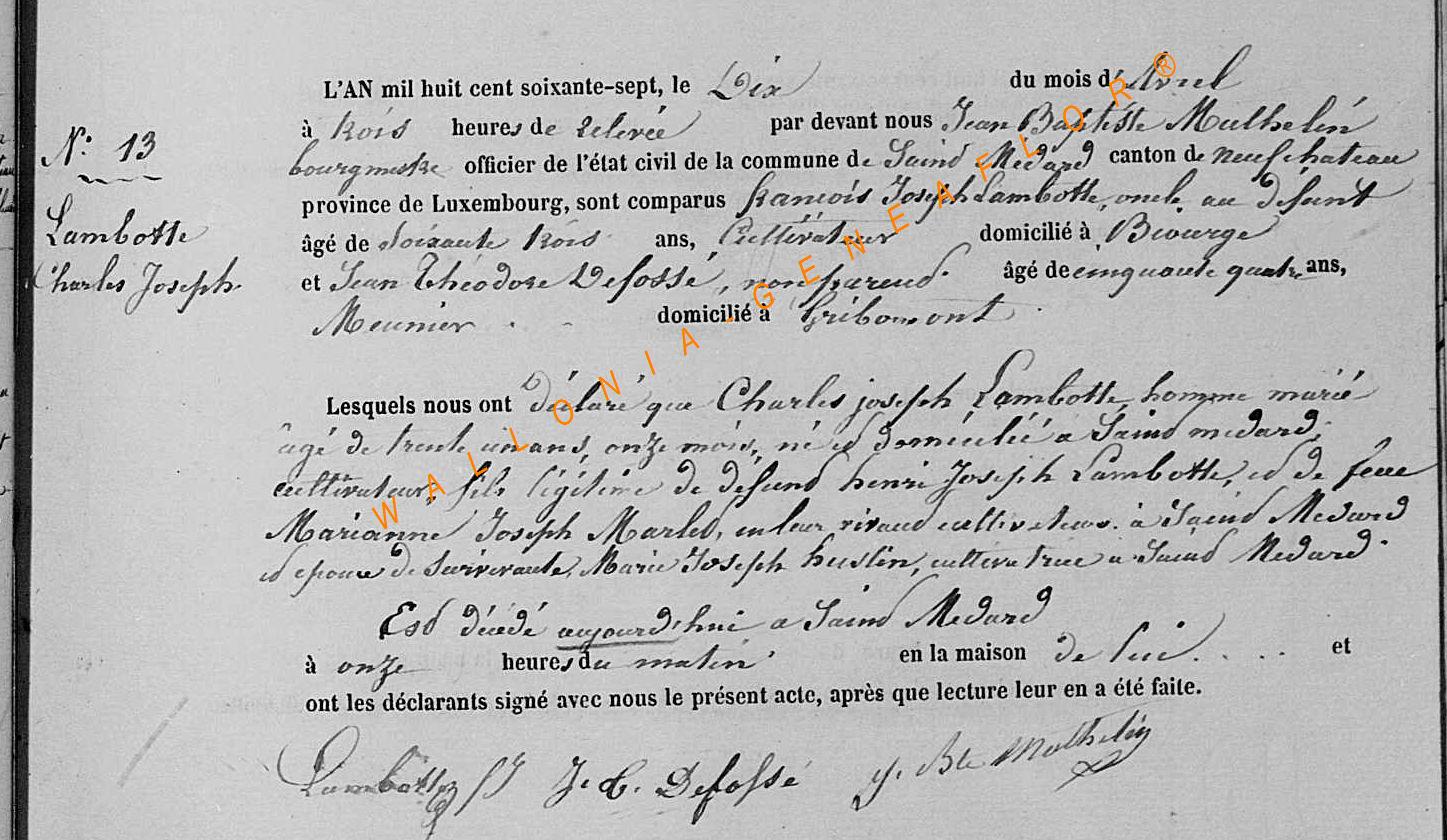 L'AN mil huit cent soixante-sept, le Dix du mois d'Avril
N.° 13
à trois heures de relevée par devant nous Jean Baptiste Mulhelin
bourgmestre officier de l'état civil de la commune de Saind Médard canton de neufchateau
province de Luxembourg, sont comparus francois Joseph Lambotte, oncle au défunt
Lambotte
Charles Joseph
âgé de Soixante trois ans, Cultivateur domicilié à Biourge
et Jean Théodore Defossé, non parend âgé de cinquante quatre ans,
Meunier domicilié à Gribomont
Lesquels nous ont déclaré que Charles joseph Lambotte, homme marié
agé de trente un ans, onze mois, né ed domicilié a Saind medard,
cultivateur, fils légitime de defund henri Joseph Lambotte, ed de feue
Marianne Joseph Marled, en leur vivand cultivateurs à Saind Medard
ed epoux de Survivante, Marie Joseph huslin, cultivatrice a Saind Medard.
Esd décédé aujourd'hui a Saind Medard
à onze heures du matin en la maison de lui. et
ont les déclarants signé avec nous le présent acte, après que lecture leur en a été faite.
Lambotte fJ J. C. Defossé J. Bte Mulhelin
WALLONIA-GENEAFLOR®